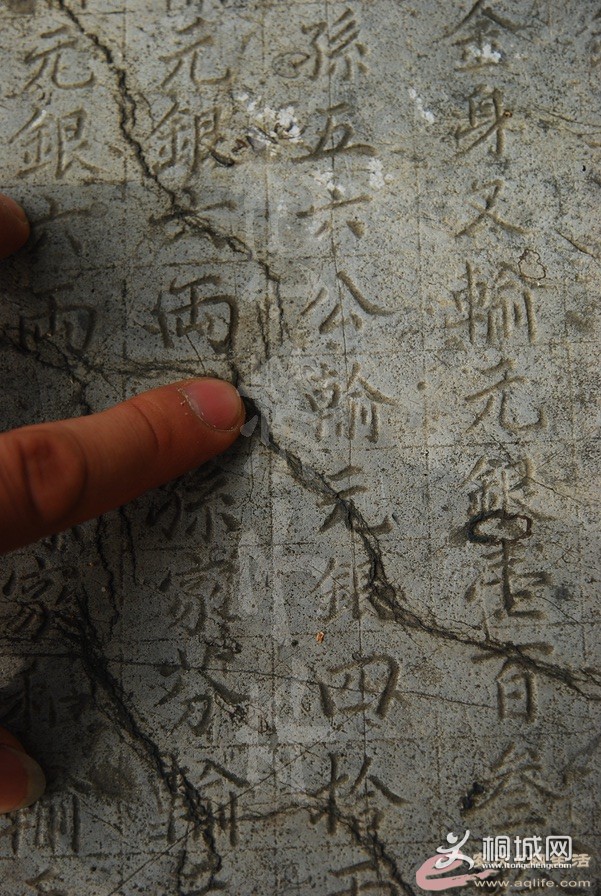 金身又輸元銀壹百叁
孫五六公輸元銀四拾
元銀六兩
孫家芬輸
元銀六兩
家輸
桐城网
www.itongcheng.com
生活
www.aqlife.com